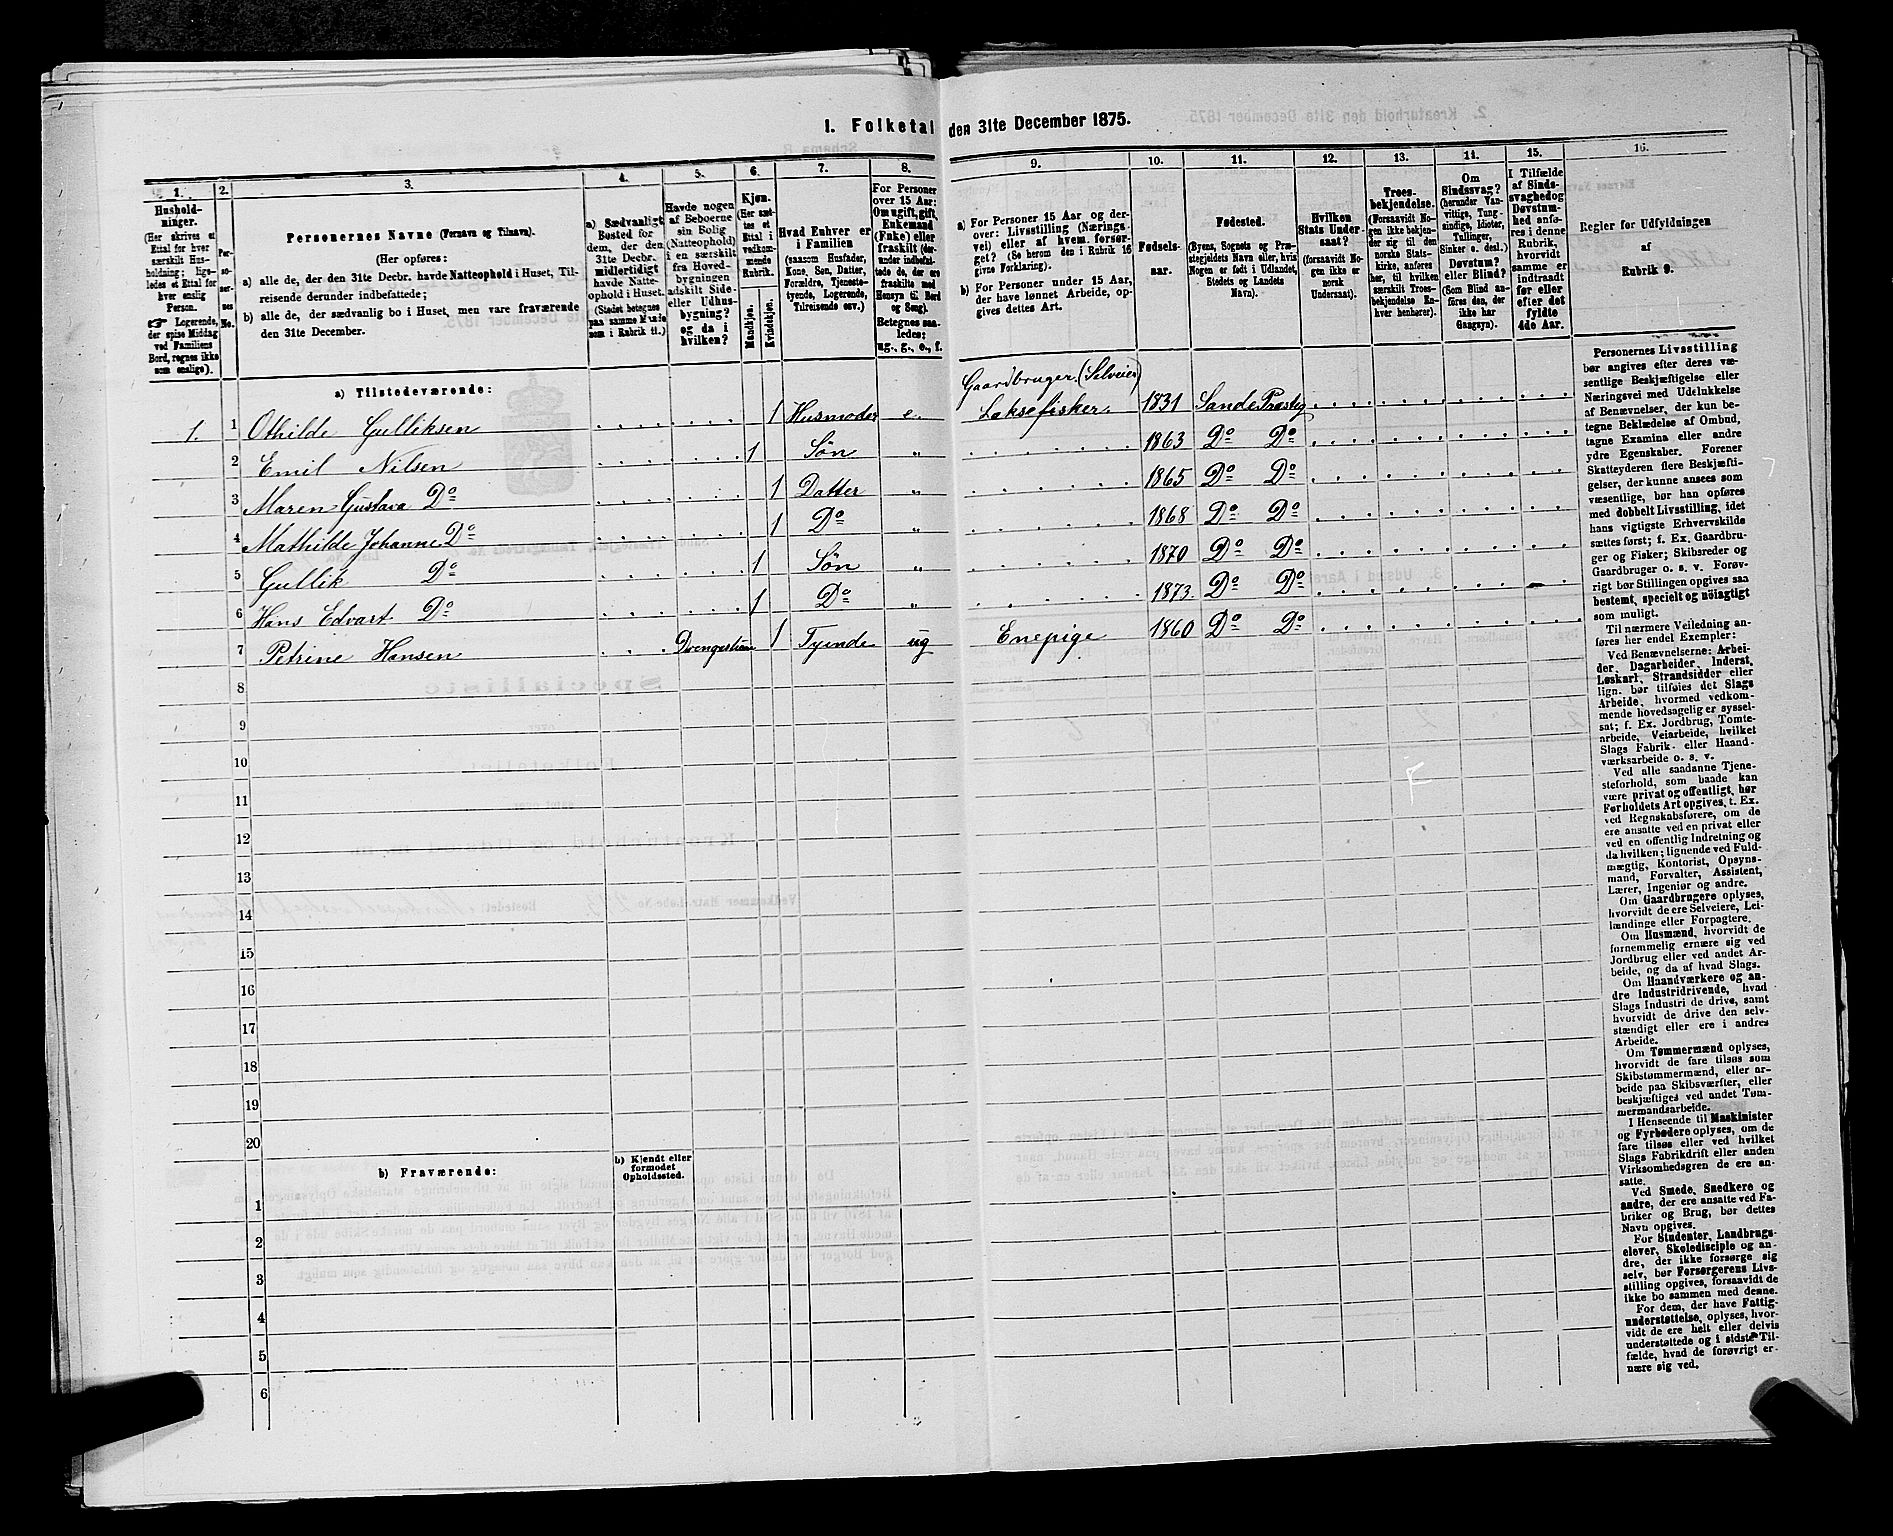 1. Folketal den 31te December 1875.
1. 2. 3. 4. 5. 6. 7. 8. 9. 10. 11. 12. 13. 14. 15. 16.
Hushold-
ninger.
(Her skrives et
Ettal for hver
særskilt Hus-
holdning; lige-
ledes et Ettal for
hver enslig
Person.
☞ Logerende,
der spise Middag
ved Familiens
Bord, regnes ikke
som enslige).
Per-
so-
ner-
nes
No.
Personernes Navne (Fornavn og Tilnavn).
(Her opføres:
a) alle de, der den 31te Decbr. havde Natteophold i Huset, Til-
reisende derunder indbefattede;
b) alle de, der sædvanlig bo i Huset, men vare fraværende
den 31te December.
a) Sædvanligt
Bosted for
dem, der den
31te Decbr.
midlertidigt
havde Natte-
ophold i Huset.
(Stedet betegnes
paa samme Maade
som i Rubrik 11.)
Havde nogen
af Beboerne
sin Bolig
(Natteophold)
i en særskilt
fra Hoved-
bygningen
adskilt Side-
eller Udhus-
bygning?
og da i
hvilken?
Kjøn.
(Her sæt-
tes et
Ettal i
vedkom-
mende
Rubrik.
Mandkjøn.
Kvindekjøn.
Hvad Enhver er
i Familien
(saasom Husfader,
Kone, Søn, Datter,
Forældre, Tjeneste-
tyende, Logerende,
Tilreisende osv.)
For Personer
over 15 Aar:
Om ugift, gift,
Enkemand
(Enke) eller
fraskilt (der-
under indbefat-
tede de, der ere
fraskilte med
Hensyn til Bord
og Seng).
Betegnes saa-
ledes:
ug., g., e., f.
a) For Personer 15 Aar og der-
over: Livsstilling (Nærings-
vei) eller af hvem forsør-
get? (Se herom den i Rubrik 16
givne Forklaring).
b) For Personer under 15 Aar,
der have lønnet Arbeide, op-
gives dettes Art.
Fødsels-
aar.
Fødested.
(Byens, Sognets og Præ-
stegjeldets Navn eller, hvis
Nogen er født i Udlandet,
Stedets og Landets
Navn).
Hvilken
Stats Under-
saat?
(forsaavidt No-
gen ikke er
norsk
Undersaat).
Troes-
bekjendelse.
(Forsaavidt No-
gen ikke bekjen-
der sig til den
norske Stats-
kirke, anføres
her, til hvilken
særskilt Troes-
bekjendelse En-
hver henhører).
Om
Sindssvag?
(herunder Van-
vittige, Tung-
sindige, Idioter,
Tullinger,
Sinker o. desl.)
Døvstum?
eller Blind?
(Som Blind an-
føres den, der
ikke har
Gangsyn).
I Tilfælde
af Sinds-
svaghed og
Døvstum-
hed anfø-
res i denne
Rubrik,
hvorvidt
samme er
indtraadt
før eller
efter det
fyldte
4de Aar.
Regler for Udfyldningen
af
Rubrik 9.
a) Tilstedeværende:
Gaardbruger. (Selveier)
1. 1 Othilde Gulliksen 1 Husmoder e. Laksefisker. 1831 Sande Præstig
2 Emil Nilsen 1 Søn „ 1863 Do Do
3 Maren Gustava Do 1 Datter „ 1865 Do Do
4 Mathilde Johanne Do 1 Do „ 1868 Do Do
5 Gullik Do 1 Søn „ 1870 Do Do
6 Hans Edvart Do 1 Do „ 1873. Do Do
7 Petrine Hansen 1 Tyende ug Enepige 1860 Do Do
8
9
10
11
12
13
14
15
16
17
18
19
20
b) Fraværende:
b) Kjendt eller
formodet
Opholdssted.
1
2
3
4
5
6
Personernes Livsstilling
bør angives efter deres væ-
sentlige Beskjæftigelse eller
Næringsvei med Udelukkelse
af Benævnelser, der kun be-
tegne Beklædelse af Ombud,
tagne Examina eller andre
ydre Egenskaber. Forener
Skatteyderen flere Beskjæfti-
gelser, der kunne ansees som
væsentlige, bør han opføres
med dobbelt Livsstilling, idet
hans vigtigste Erhvervskilde
sættes først; f. Ex. Gaardbru-
ger og Fisker; Skibsreder og
Gaardbruger o. s. v. Forøv-
rigt bør Stillingen opgives saa
bestemt, specielt og nøiagtigt
som muligt.
Til nærmere Veiledning an-
føres her endel Exempler:
Ved Benævnelserne: Arbei-
der, Dagarbeider, Inderst,
Løskarl, Strandsidder eller
lign. bør tilføies det Slags
Arbeide, hvormed vedkom-
mende hovedsagelig er syssel-
sat; f. Ex. Jordbrug, Tomte-
arbeide, Veiarbeide, hvilket
Slags Fabrik- eller Haand-
værksarbeide o. s. v.
Ved alle saadanne Tjene-
steforhold, som baade kan
være privat og offentligt, bør
Forholdets Art opgives, t. Ex.
ved Regnskabsførere, om de
ere ansatte ved en privat eller
ved en offentlig Indretning og
da hvilken; lignende ved Fuld-
mægtig, Kontorist, Opsyns-
mand, Forvalter, Assistent,
Lærer, Ingeniør og andre.
Om Gaardbrugere oplyses,
hvorvidt de ere Selveiere, Lei-
lændinge eller Forpagtere.
Om Husmænd, hvorvidt de
fornemmelig ernære sig ved
Jordbrug eller ved andet Ar-
beide, og da af hvad Slags.
Om Haandværkere og an-
dre Industridrivende, hvad
Slags Industri de drive, samt
hvorvidt de drive den selv-
stændigt eller ere i andres
Arbeide.
Om Tømmermænd oplyses,
hvorvidt de fare tilsøs som
Skibstømmermænd, eller ar-
beide paa Skibsværfter, eller
beskjæftiges ved andet Tøm-
mermandsarbeide.
I Henseende til Maskinister
og Fyrbødere oplyses, om de
fare tilsøs eller ved hvilket
Slags Fabrikdrift eller anden
Virksomhedsgren de ere an-
satte.
Ved Smede, Snedkere og
andre, der ere ansatte ved Fa-
briker og Brug, bør dettes
Navn opgives.
For Studenter, Landbrugs-
elever, Skoledisciple og an-
dre, der ikke forsørge sig
selv, bør Forsørgerens Livs-
stilling opgives, forsaavidt de
ikke bo sammen med denne.
For dem, der have Fattig-
understøttelse, oplyses, hvor-
vidt de ere helt eller delvis
understøttede og i sidste Til-
fælde, hvad de forøvrigt er-
nære sig ved.